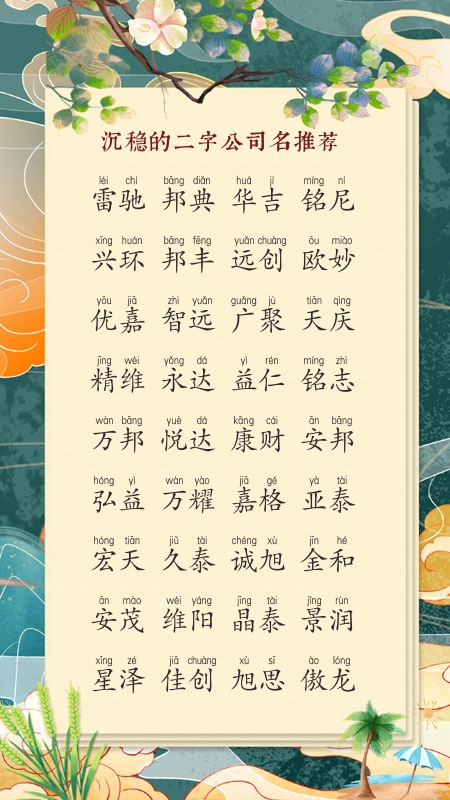 沉稳的二字公司名推荐
léi chí bāng diǎn huá jí míng ní
雷驰 邦典 华吉 铭尼
xīng huán bāng fēng yuǎn chuàng ōu miào
兴环 邦丰 远创 欧妙
yōu jiā zhì yuǎn guǎng jù tiān qìng
优嘉 智远 广聚 天庆
jīng wéi yǒng dá yì rén míng zhì
精维 永达 益仁 铭志
wàn bāng yuè dá kāng cái ān bāng
万邦 悦达 康财 安邦
hóng yì wàn yào jiā gé yà tài
弘益 万耀 嘉格 亚泰
hóng tiān jiǔ tài chéng xù jīn hé
宏天 久泰 诚旭 金和
ān mào wéi yáng jīng tài jǐng rùn
安茂 维阳 晶泰 景润
xīng zé jiā chuàng xù sī ào lóng
星泽 佳创 旭思 傲龙